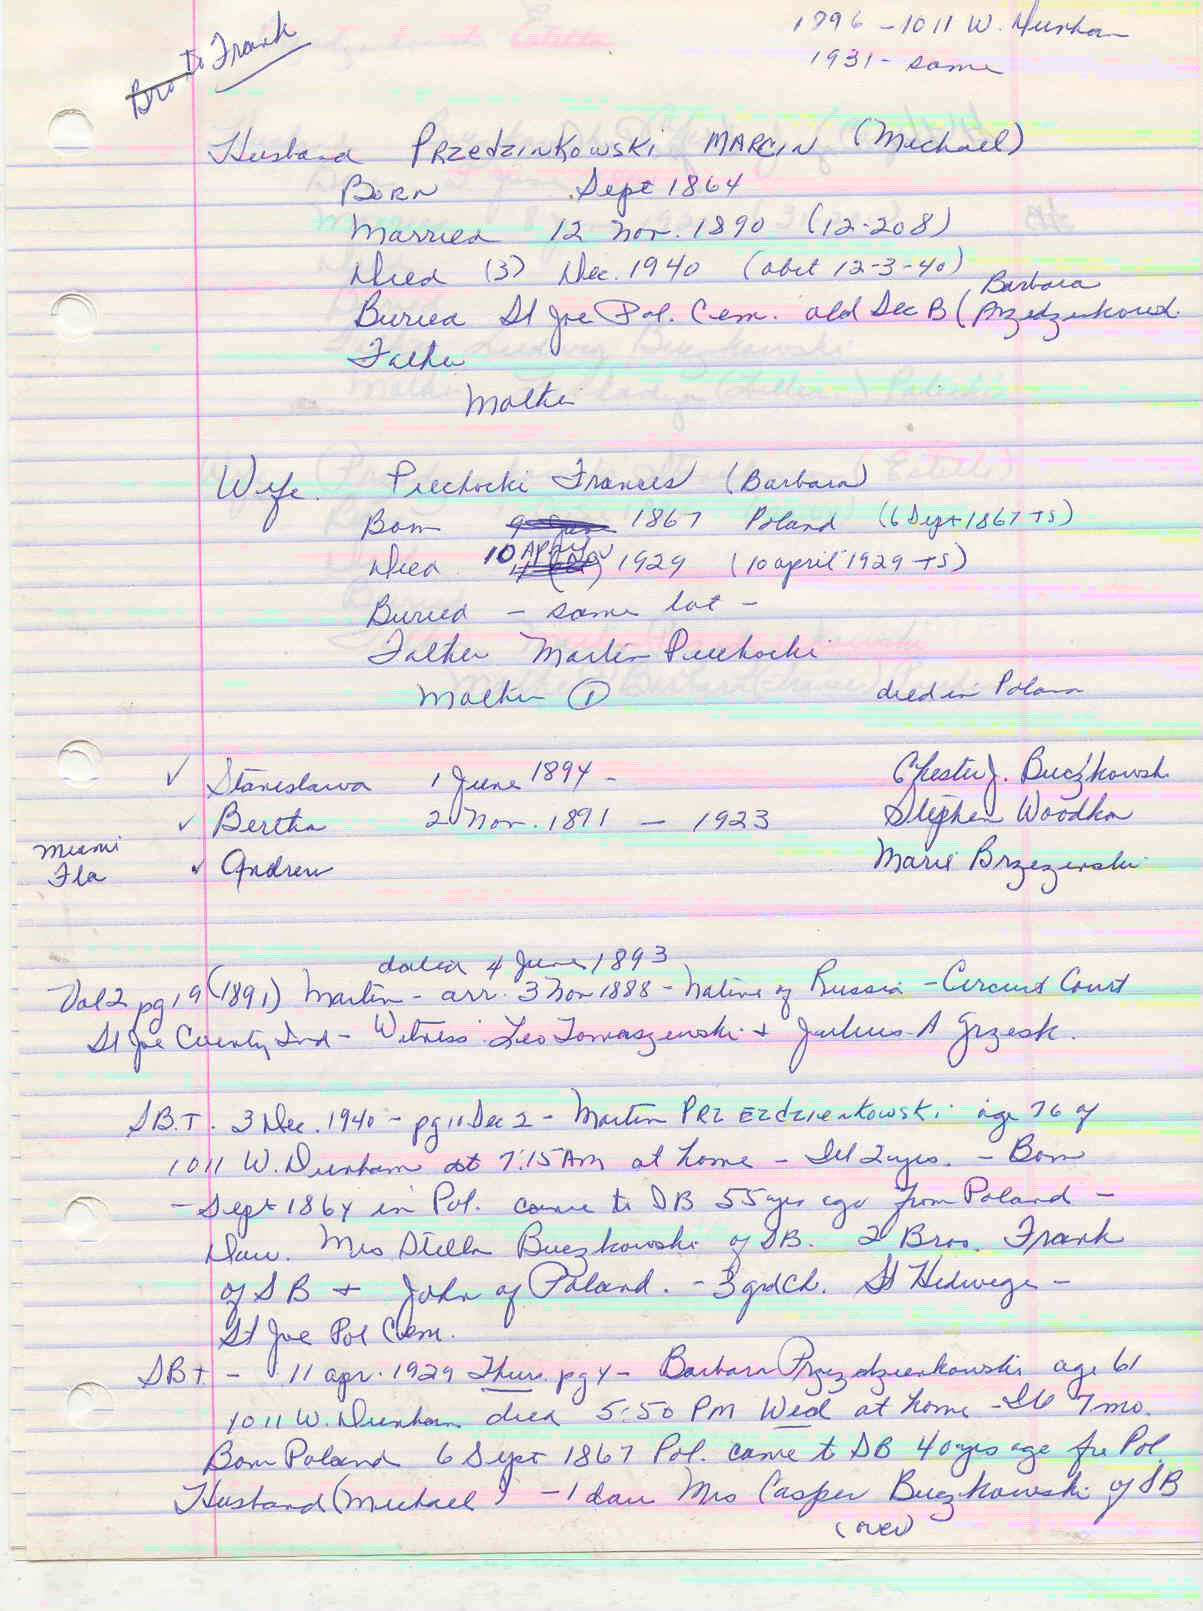 Bro to Frank
1896 - 1011 W. Dunham
1931 - same
Husband PRZEdZINKOWSKi MARCIN (Michael)
BORN Sept 1864
Married 12 Nov. 1890 (12-208)
Died (3) Dec. 1940 (obit 12-3-40)
Buried St Joe Pol. Cem. old Sec B (Barbara
Father
Mother
Wife Piechocki Frances (Barbara)
Born 1867 Poland (6 Sept 1867 TS)
Died 10 APRIL 1929 (10 april 1929 TS)
Buried - same lot -
Father Martin Piechocki
Mother ① died in Poland
✓ Stanislawa 1 June 1894 - Chester J. Buczkowski
✓ Bertha 2 Nov. 1891 - 1923 Stephen Woodka
Miami Fla ✓ Andrew Marie Brzezinski
dated 4 June 1893
Vol 2 pg 19 (1891) Martin - arr. 3 Nov 1888 - Native of Russia - Circuit Court
St Joe County Ind - Witness Leo Tomaszewski + Julius A Grzesk.
SB.T. 3 Dec. 1940 - pg 11 Sec 2 - Martin PRZEZdZIenkowski age 76 of
1011 W. Dunham at 7:15 AM at home - Ill 2 yrs. - Born
- Sept 1864 in Pol. came to SB 55 yrs ago from Poland -
Dau. Mrs Stella Buczkowski of SB. 2 Bros. Frank
of SB + John of Poland. - 3 grdch. St Hedwige -
St Joe Pol Cem.
SBT - 11 apr. 1929 Thurs. pg 4 - Barbara Przezdzienkowski age 61
1011 W. Dunham died 5:50 PM Wed at home - Ill 7 mo.
Born Poland 6 Sept 1867 Pol. came to SB 40 yrs ago fr Pol.
Husband (Michael) - 1 dau Mrs Casper Buczkowski of SB
(over)